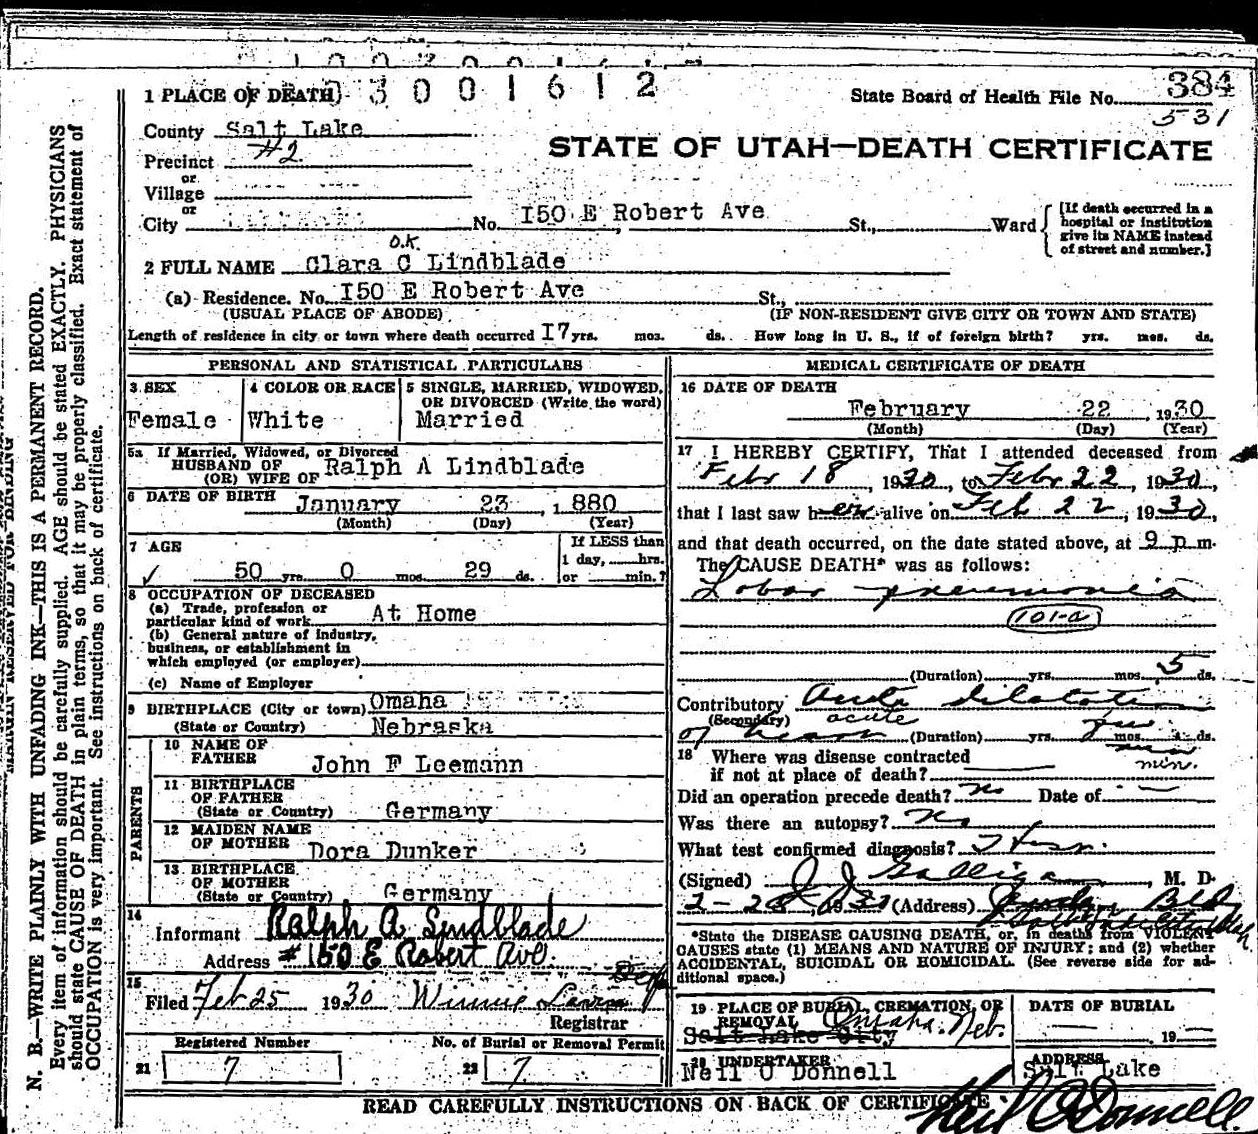 3001612
1 PLACE OF DEATH
State Board of Health File No. 384
531
County Salt Lake
STATE OF UTAH—DEATH CERTIFICATE
Precinct #2
or
Village
or
City No. 150 E Robert Ave St., Ward
[If death occurred in a
hospital or institution
give its NAME instead
of street and number.]
O.K.
2 FULL NAME Clara C Lindblade
(a) Residence. No. 150 E Robert Ave St.,
(USUAL PLACE OF ABODE) (IF NON-RESIDENT GIVE CITY OR TOWN AND STATE)
Length of residence in city or town where death occurred 17 yrs. mos. ds. How long in U. S., if of foreign birth? yrs. mos. ds.
PERSONAL AND STATISTICAL PARTICULARS
3 SEX
Female
4 COLOR OR RACE
White
5 SINGLE, MARRIED, WIDOWED,
OR DIVORCED (Write the word)
Married
5a If Married, Widowed, or Divorced
HUSBAND OF
(OR) WIFE OF Ralph A Lindblade
6 DATE OF BIRTH January 23, 1880
(Month) (Day) (Year)
7 AGE
If LESS than
1 day, hrs.
or min.?
✓ 50 yrs. 0 mos. 29 ds.
8 OCCUPATION OF DECEASED
(a) Trade, profession or
particular kind of work At Home
(b) General nature of industry,
business, or establishment in
which employed (or employer)
(c) Name of Employer
9 BIRTHPLACE (City or town) Omaha
(State or Country) Nebraska
PARENTS
10 NAME OF
FATHER John F Leemann
11 BIRTHPLACE
OF FATHER
(State or Country) Germany
12 MAIDEN NAME
OF MOTHER Dora Dunker
13 BIRTHPLACE
OF MOTHER
(State or Country) Germany
14
Informant Ralph A. Lindblade
Address #150 E Robert Ave.
15
Filed Feb 25 1930 Winnie
Registrar
Registered Number
21 7
No. of Burial or Removal Permit
22 7
MEDICAL CERTIFICATE OF DEATH
16 DATE OF DEATH
February 22 1930
(Month) (Day) (Year)
17 I HEREBY CERTIFY, That I attended deceased from
Febr 18, 1930, to Febr 22, 1930,
that I last saw her alive on Feb 22, 1930,
and that death occurred, on the date stated above, at 9 p m.
The CAUSE DEATH* was as follows:
Lobar pneumonia
101-a
(Duration) yrs. mos. 5 ds.
Contributory Acute dilatation
(Secondary) acute
of heart (Duration) yrs. mos. ds.
min.
18 Where was disease contracted
if not at place of death?
Did an operation precede death? No Date of —
Was there an autopsy? No
What test confirmed diagnosis?
(Signed) J J Galligan, M. D.
(Address)
*State the DISEASE CAUSING DEATH, or, in deaths from VIOLENT
CAUSES state (1) MEANS AND NATURE OF INJURY; and (2) whether
ACCIDENTAL, SUICIDAL OR HOMICIDAL. (See reverse side for ad-
ditional space.)
19 PLACE OF BURIAL, CREMATION, OR
REMOVAL Omaha. Neb.
Salt Lake City
DATE OF BURIAL
— 19 —
20 UNDERTAKER
Neil O Donnell
ADDRESS
Salt Lake
READ CAREFULLY INSTRUCTIONS ON BACK OF CERTIFICATE
Neil O'Donnell.
N. B.—WRITE PLAINLY WITH UNFADING INK—THIS IS A PERMANENT RECORD.
Every item of information should be carefully supplied. AGE should be stated EXACTLY. PHYSICIANS
should state CAUSE OF DEATH in plain terms, so that it may be properly classified. Exact statement of
OCCUPATION is very important. See instructions on back of certificate.
MARGIN RESERVED FOR BINDING